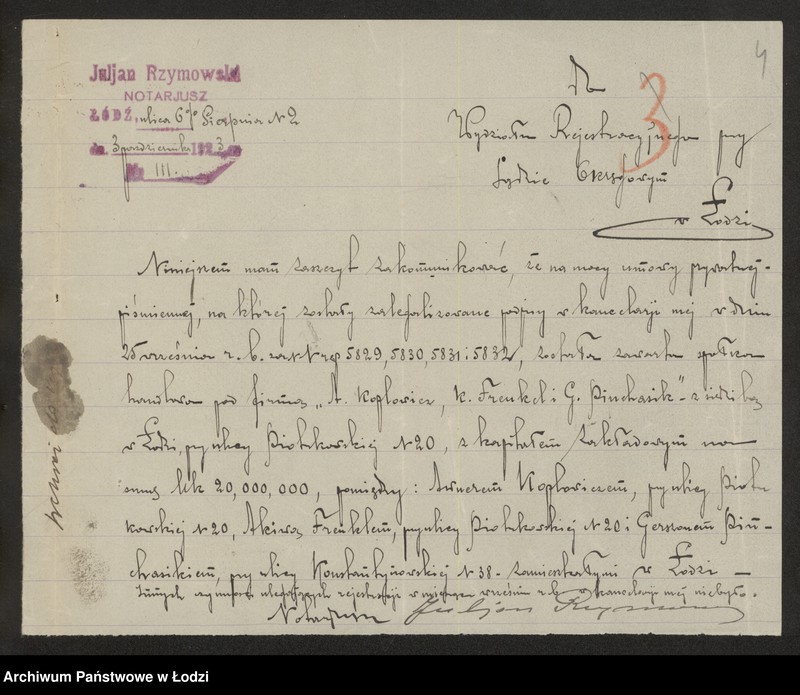 4
Juljan Rzymowski
NOTARJUSZ
ŁÓDŹ, ulica 6go Sierpnia N 2
dn. 3 października 1923 r.
№ 111.
3
Do
Wydziału Rejestracyjnego przy
Sądzie Okręgowym
w Łodzi
Niniejszem mam zaszczyt zakomunikować, że na mocy umowy prywatnej-
piśmiennej, na której zostały zalegalizowane podpisy w kancelarji mej w dniu
26 września r. b. za NN rep 5829, 5830, 5831 i 5832, została zawarta spółka
handlowa pod firmą „A. Kopłowicz, K. Frenkel i G. Pinchasik" - z siedzibą
w Łodzi, przy ulicy Piotrkowskiej N 20, z kapitałem zakładowym na
sumę Mk 20,000,000, pomiędzy: Awnerem Kopłowiczem, przy ulicy Piotr
kowskiej N 20, Akiwą Frenklem, przy ulicy Piotrkowskiej N 20 i Gerszonem Pin-
chasikiem, przy ulicy Konstantynowskiej N 38 - zamieszkałymi w Łodzi -
Innych umów ulegających rejestracji w miesiącu wrześniu r. b. w kancelarji mej nie było.
Notarjusz Juljan Rzymowski
Archiwum Państwowe w Łodzi